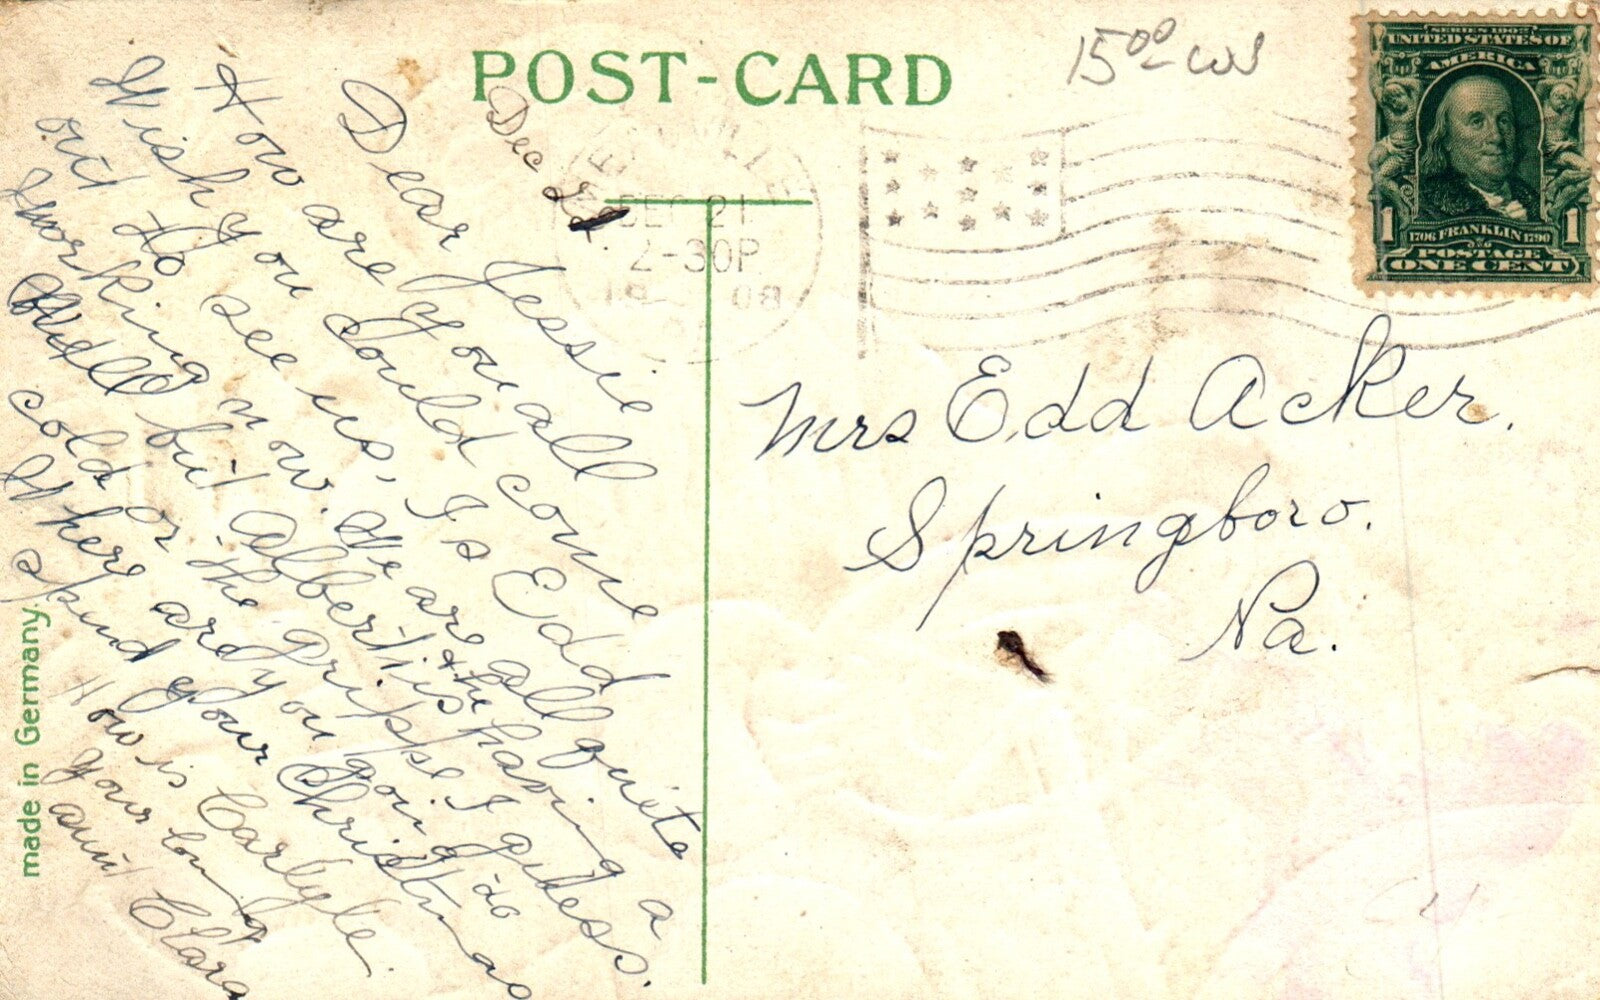 POST-CARD
15⁰⁰ ws
SERIES 1902
UNITED STATES OF
AMERICA
1 1706 FRANKLIN 1790 1
POSTAGE
ONE CENT
DEC 21
2-30P
19 08
Dec
Dear Jessie
How are you all
Wish you could come
out to see us, Is Edd
working now. We are all quite
well but Albert is having a
cold or the grippe I guess.
Where are you going to
spend your Christmas
How is Carlyle.
your loving
aunt Clara
Mrs Edd Acker.
Springboro.
Pa.
made in Germany.